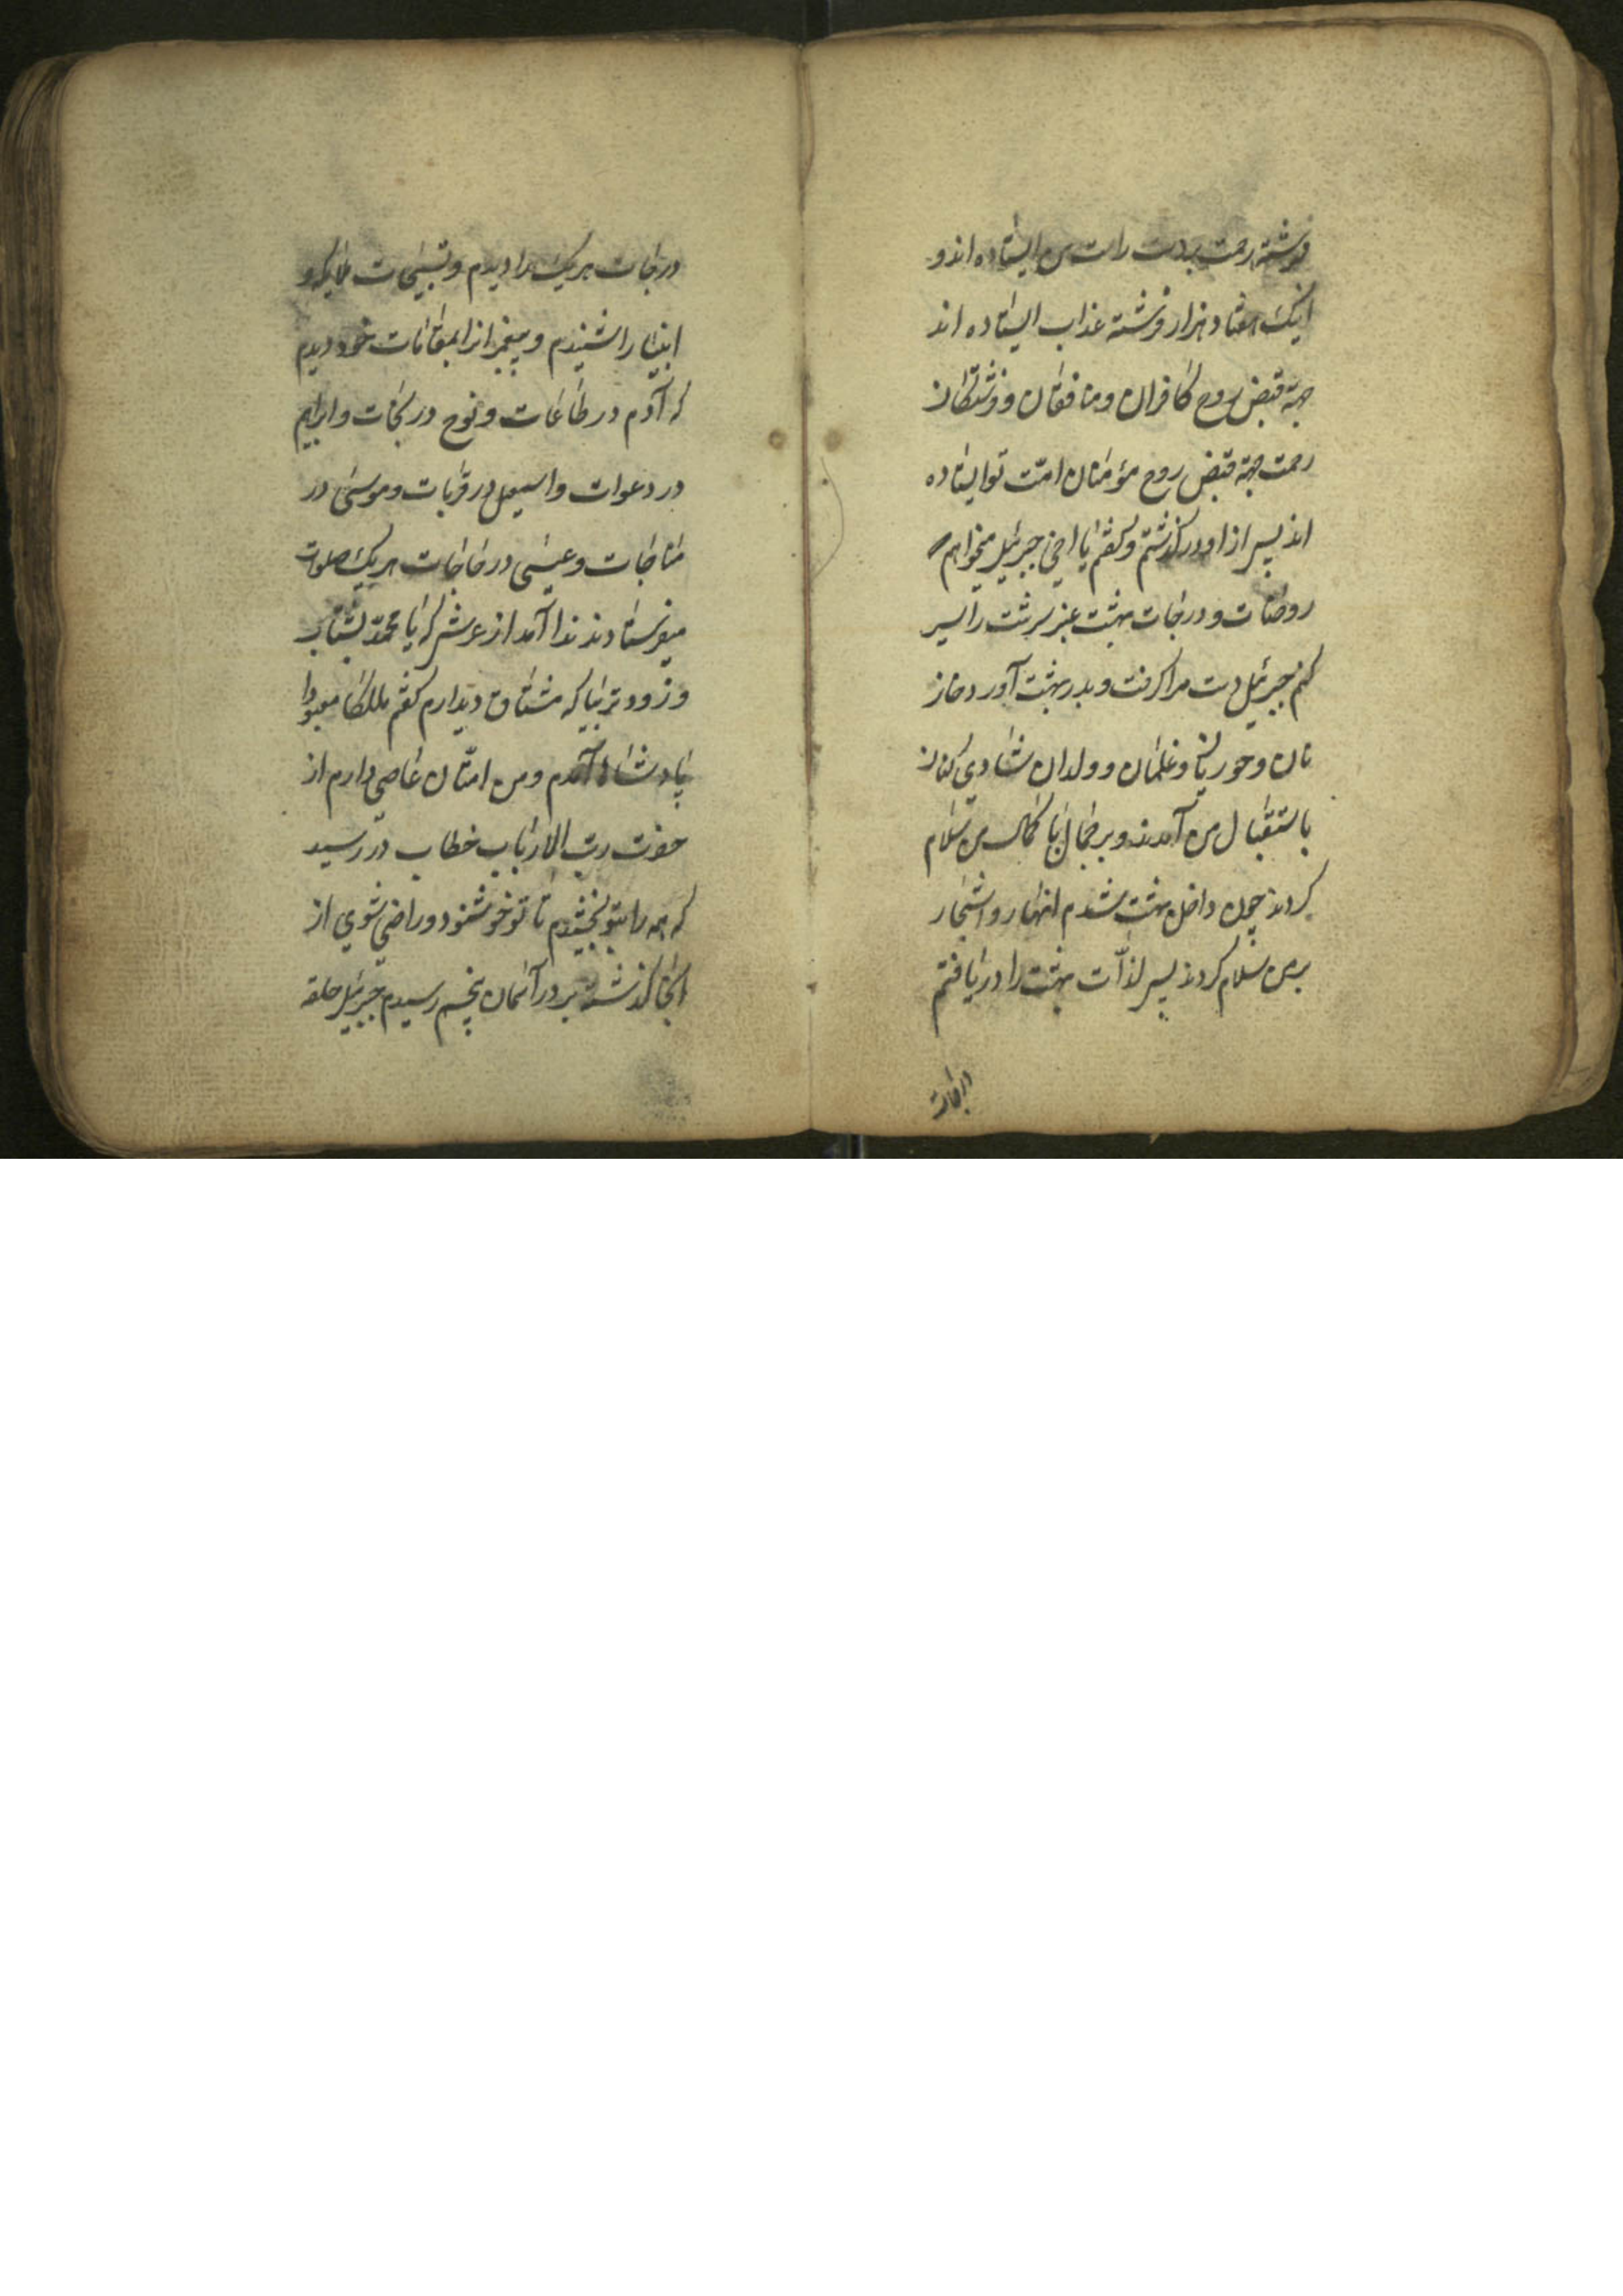 فرشته رحمت بدست راست من ایستاده اند و
اینک هفتاد هزار فرشته عذاب ایستاده اند
جهة قبض روح کافران و منافقان و فرشتکان
رحمت جهة قبض روح مؤمنان امّت تو ایستاده
اند پس از او درکذشتم و کفتم یا اخی جبرئیل میخواهم
روضات و درجات بهشت عنبر سرشت را سیر
کنم جبرئیل دست مرا کرفت و بدر بهشت آورد خاز
نان و حوریان و غلمان و ولدان شادی کنان
باستقبال من آمدند و بر جمال با کمال من سلام
کردند چون داخل بهشت شدم انهار و اشجار
بر من سلام کردند پس لذّات بهشت را دریافتم
درجات
درجات هر یک را دیدم و تسبیحات ملایکه و
انبیا را شنیدم و پیغمبرانرا بمقامات خود دیدم
که آدم در طاعات و نوح در نجات و ابراهیم
در دعوات و اسمعیل در قربات و موسی در
مناجات و عیسی در حاجات هر یک صلوات
میفرستادند ندا آمد از عرش که یا محمّد بشتاب
و زودتر بیا که مشتاق دیدارم کفتم ملکا معبودا
پادشاها آمدم و من امتان عاصی دارم از
حضرت ربّ الارباب خطاب در رسید
که همه را بتو بخشیدم تا تو خوشنود و راضی شوی از
آنجا کذشته بر در آسمان پنجم رسیدم جبرئیل حلقه